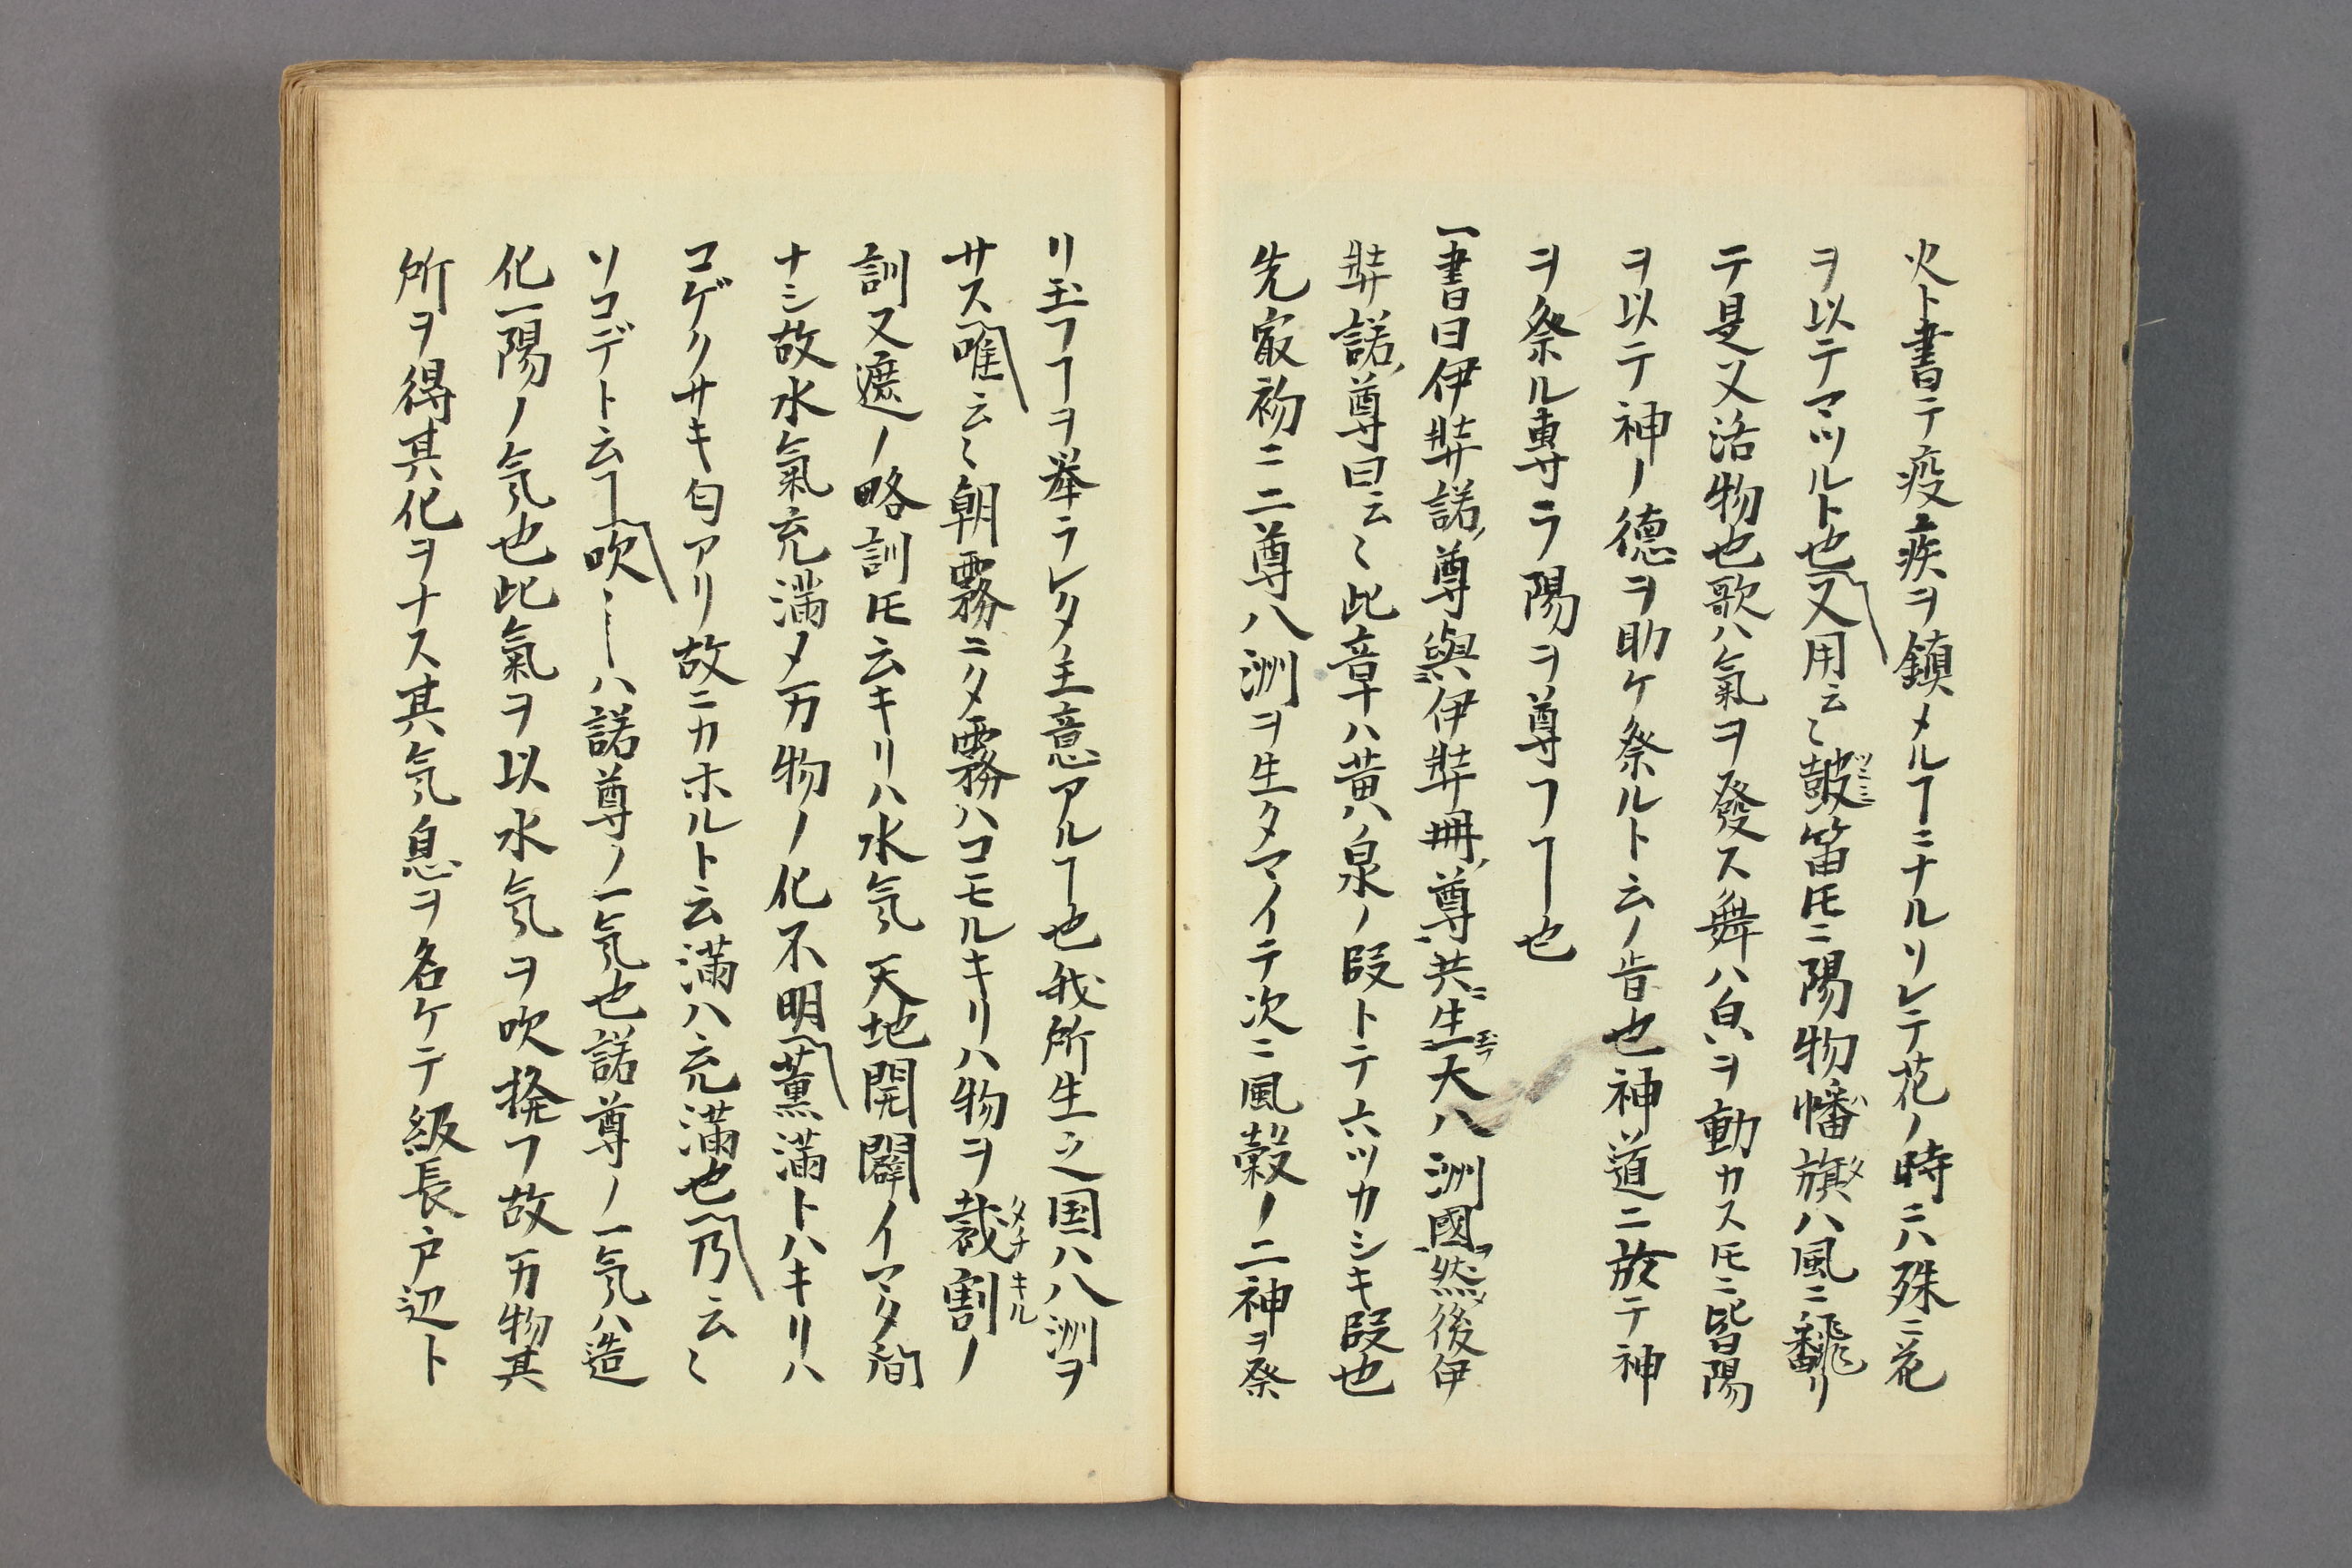 火ト書テ疫疾ヲ鎮メルヿニナルソレテ花ノ時ニハ殊ニ花
ヲ以テマツルト也又用云〻皷笛𪜈ニ陽物幡旗ハ風ニ飜リ
テ是又活物也歌ハ氣ヲ發ス舞ハ身ヲ動カス𪜈ニ皆陽
ヲ以テ神ノ德ヲ助ケ祭ルト云ノ旨也神道ニ於テ神
ヲ祭ル専ラ陽ヲ尊フヿ也
一書曰伊弉諾尊與伊弉冊尊共生大八洲國然後伊
弉諾尊曰云〻此章ハ黄泉ノ段トテ六ツカシキ段也
先㝡初ニ二尊八洲ヲ生タマイテ次ニ風穀ノ二神ヲ祭
リ玉フヿヲ挙ラレタ主意アルヿ也我所生之国ハ八洲ヲ
サス唯云〻朝霧ニタ霧ハコモルキリハ物ヲ裁割ノ
訓又遮ノ略訓𪜈云キリハ水気天地開闢イマタ
ナシ故水氣充満〆万物ノ化不明薫満トハキリハ
コゲクサキ匂アリ故ニカホルト云満ハ充満也乃云〻
ソコデト云ヿ吹〻ーハ諾尊ノ一気也諾尊ノ一気ハ造
化一陽ノ気也此氣ヲ以水気ヲ吹撥フ故万物其
所ヲ得其化ヲナス其気息ヲ名ケテ級長戸辺ト